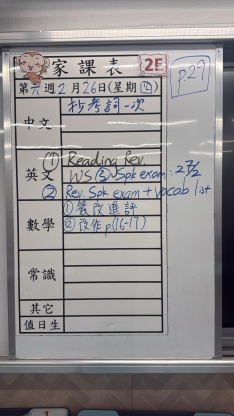 家課表 2F
p.29
第六週2月26日(星期四)
中文
抄考詞一次
英文
① Reading Rev.
WS ③ Spk exam : 27/2
② Rev. Spk exam + Vocab list
數學
① 改進評
② 改作 p(16-17)
常識
其它
值日生